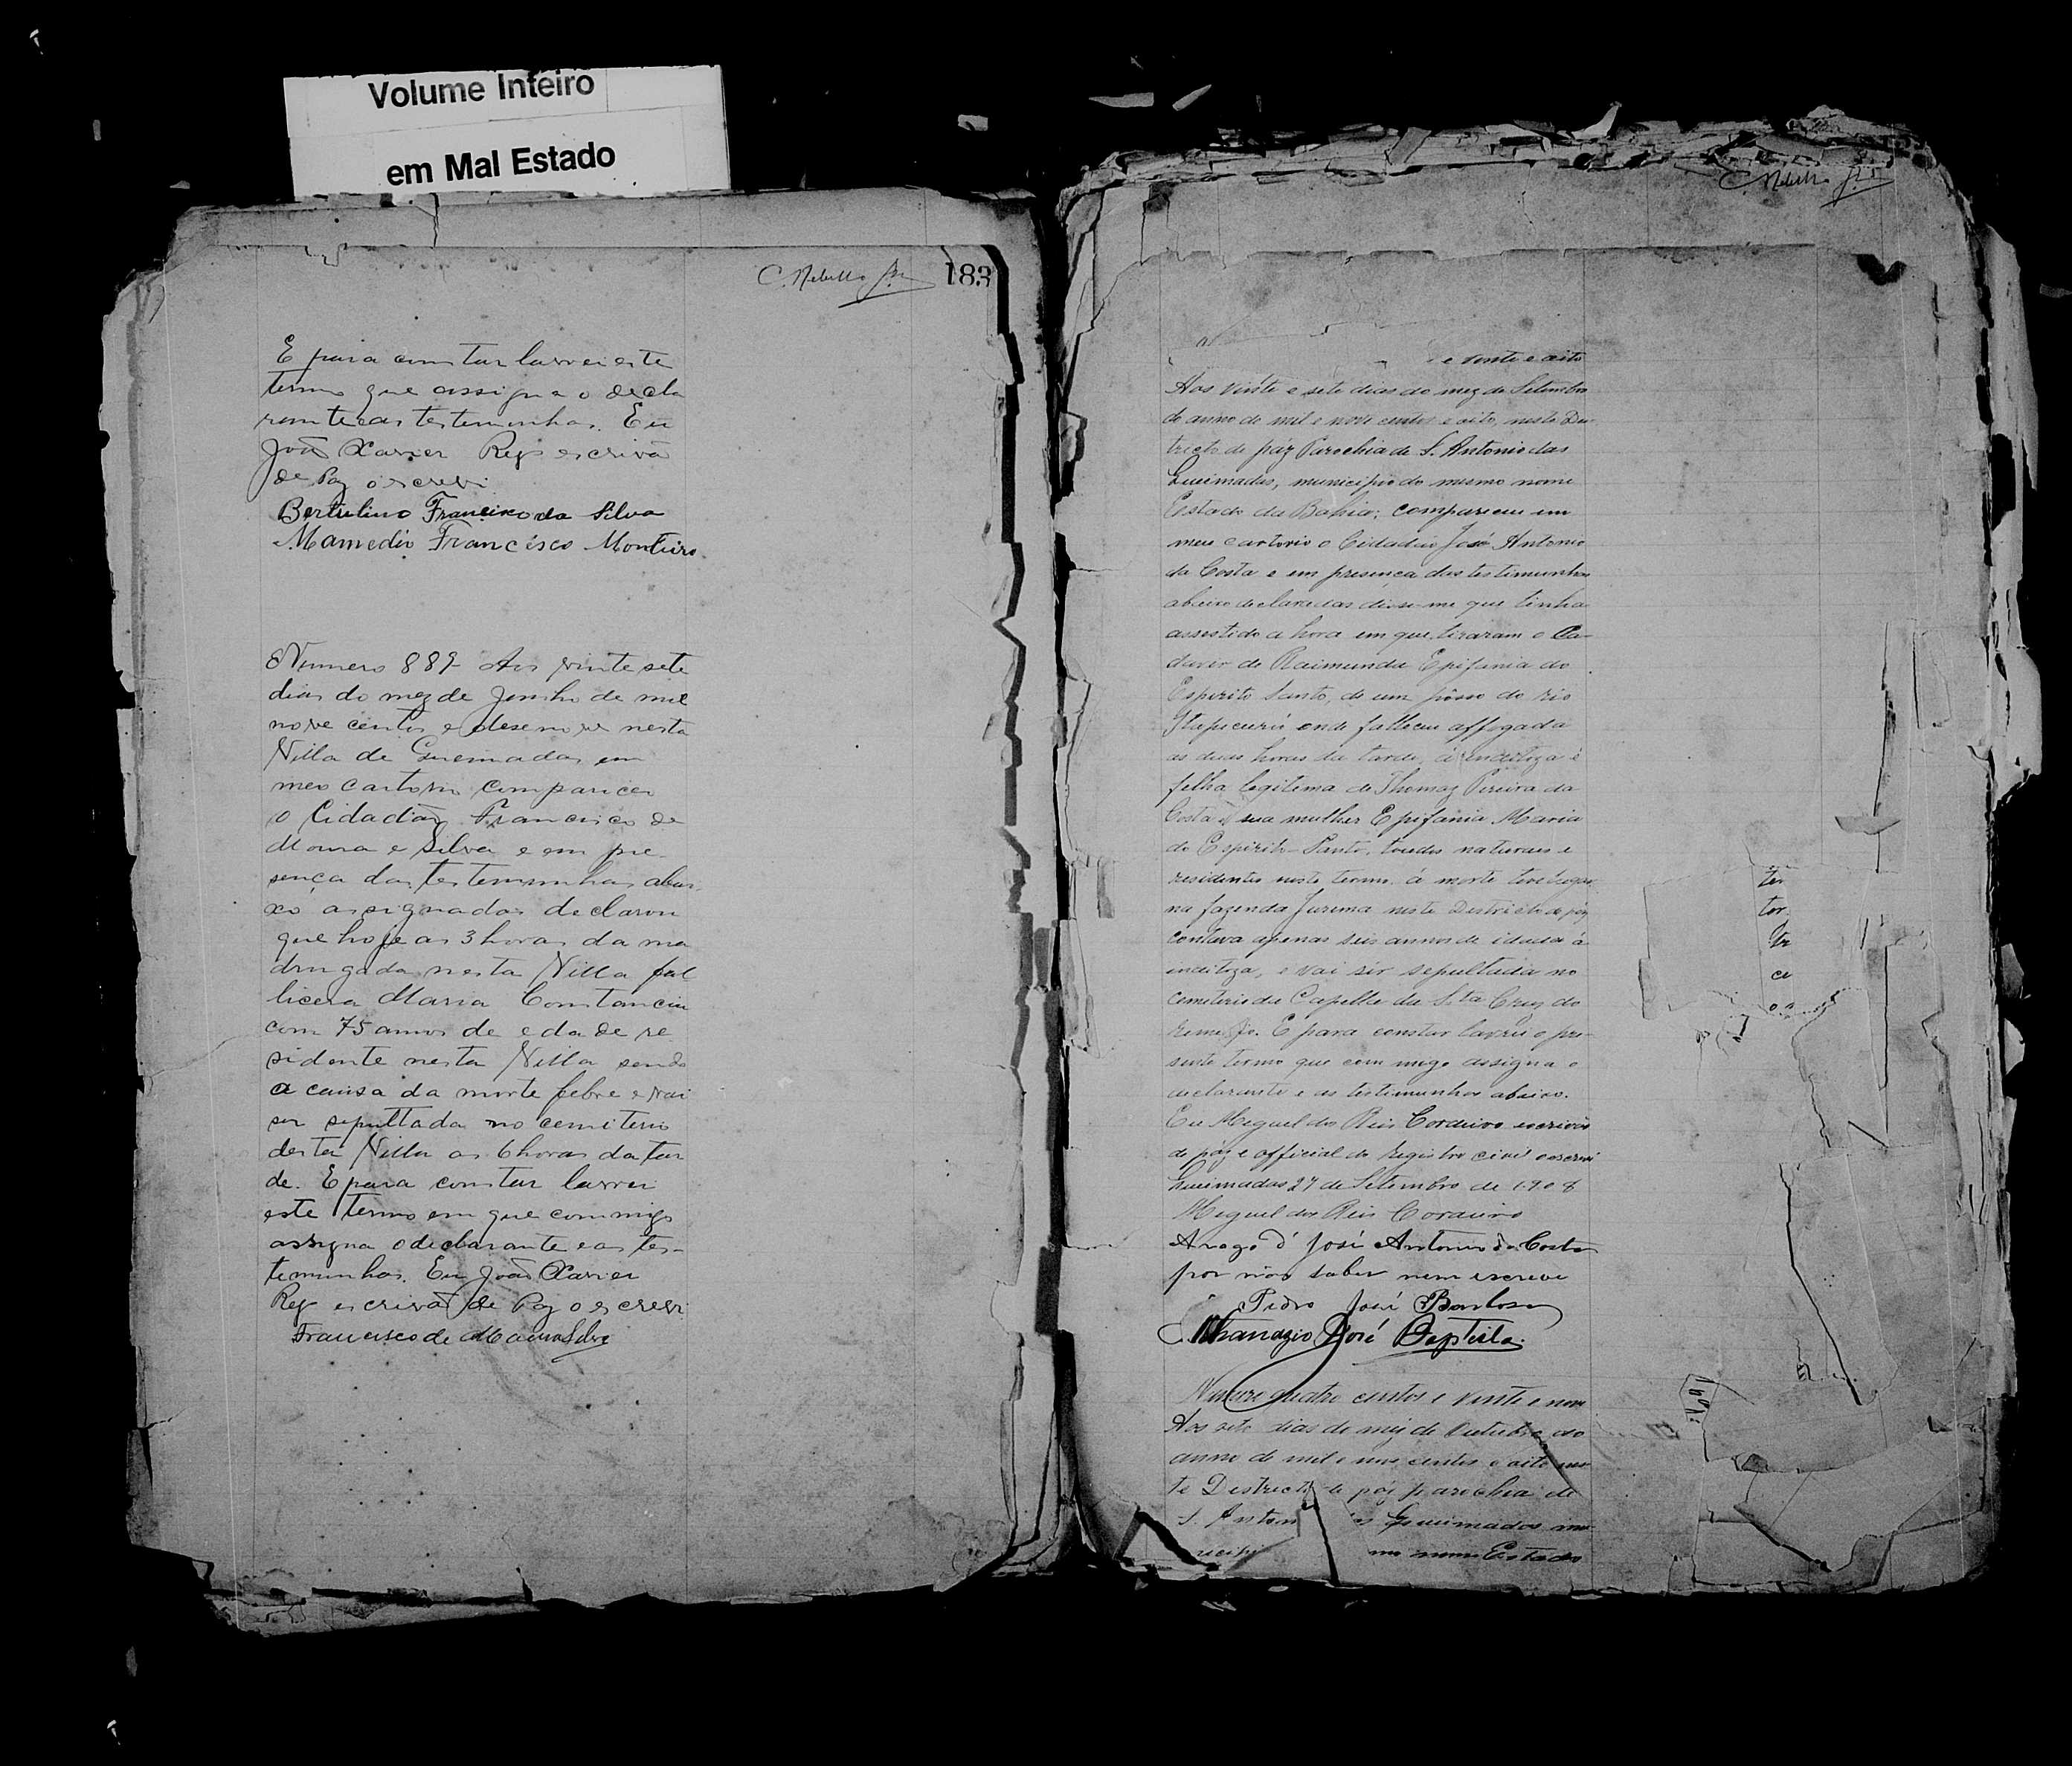 Volume Inteiro
em Mal Estado
183
E para constar lavrei este
termo que assigna o decla
rante e as testemunhas. Eu
João Xavier Reis escrivã
de Paz o escrevi
Bertulino Francisco da Silva
Mamedio Francisco Monteiro
Numero 889 Aos vinte sete
dias do mez de Junho de mil
nove centos e desenove nesta
Villa de Queimadas em
meo cartorio compareceu
o Cidadão Francisco de
Moura e Silva e em pre
sença das testemunhas abai
xo assignadas declarou
que hoje as 3 horas da ma
drugada nesta Villa fal
licera Maria Constancia
com 75 annos de edade re
sidente nesta Villa sendo
a causa da morte febre e vai
ser sepultada no cemiterio
desta Villa as 6 horas da tar
de. E para constar lavrei
este termo em que commigo
assigna o declarante e as tes-
temunhas. Eu João Xavier
Reis escrivã de Paz o escrevi
Francisco de Moura Silva
e vinte e oito
Aos vinte e sete dias do mez de Setembro
do anno de mil e nove centos e oito, neste Dis-
tricto de páz Parochia de S. Antonio das
Queimadas, municipio do mesmo nome
Estado da Bahia; compareceu em
meu cartorio o Cidadão José Antonio
da Costa e em presença das testimunhas
abaixo declaradas disse-me que tinha
assestido a hora em que tiraram o Ca-
daver de Raimunda Epifania do
Espirito Santo, de um pôsso do rio
Itapicurú onde falleceu affogada
as duas horas da tarde, á inditoza é
felha legitima de Thomaz Pireira da
Costa e sua mulher Epifania Maria
do Espirito-Santo, toudos naturaes e
residentes neste termo. á morte teve lugar
na fazenda Jurema neste Destricto de páz
contava apenas seis annos de idade á
inditoza, e vai sér sepultada no
cemeterio da Capella da S.ta Cruz do
E para constar lavrei o pre-
sente termo que com migo assigna o
declarante e as testimunhas abaixo.
Eu Miguel dos Reis Cordeiro escrivão
de páz e official do registro civil o escrevi
Queimadas 27 de Setembro de 1908
Miguel dos Reis Cordeiro
Arogo d' José Antonio da Costa
por não saber nem escreve
Pedro José Barbosa
Athanazio José Baptista
Numero quatro centos e vinte e nove
Aos sete dias do mez de Outubro do
anno de mil e nove centos e oito nes
te Destricto de páz parochia de
S. Anton as Queimadas mu
nicipi mo nome Estado
ter
tor
te
ce